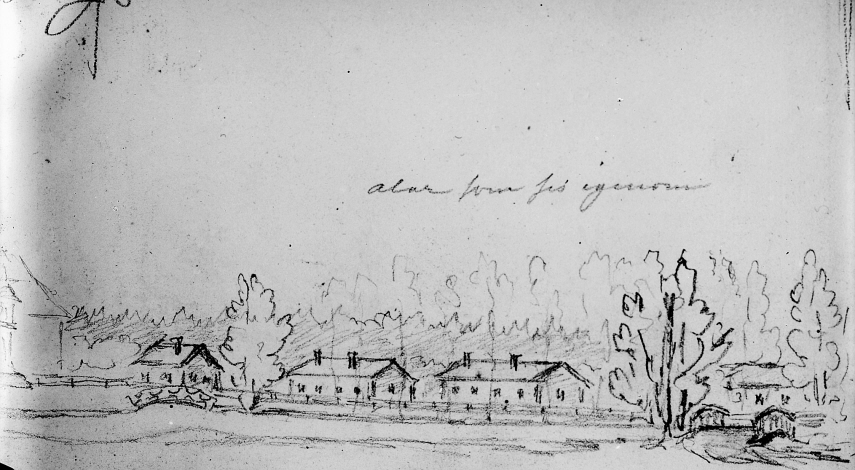 alar som ses igenom